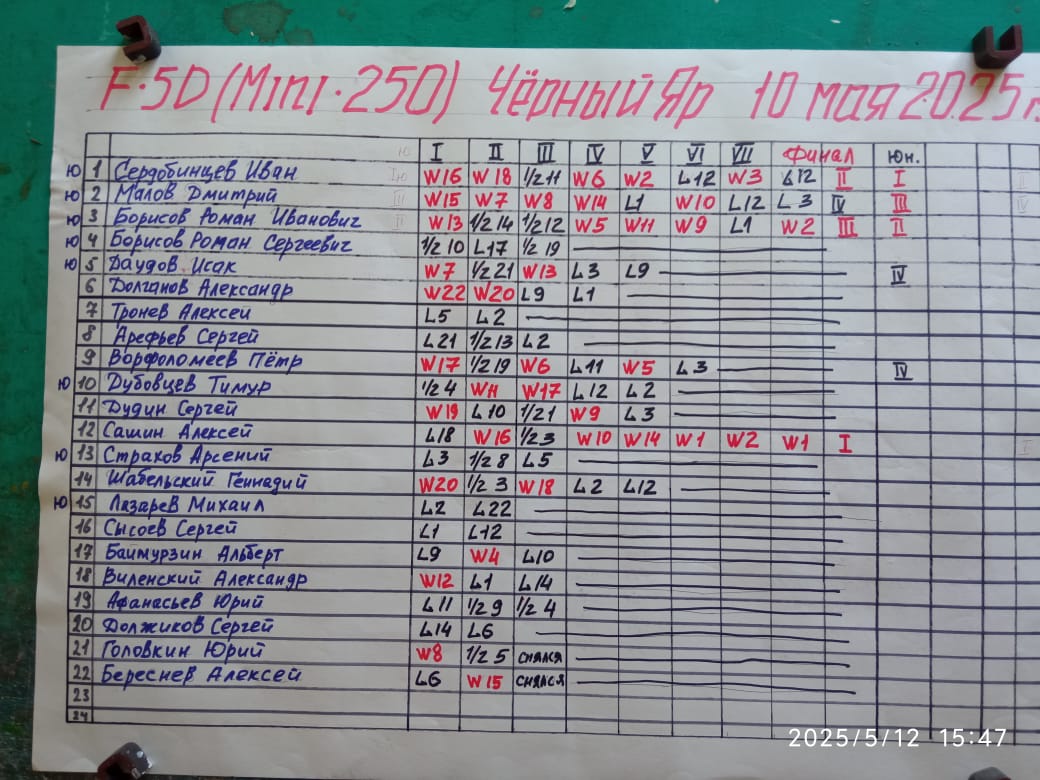 F-5D (Mini-250) Чёрный Яр 10 мая 2025г.
I II III IV V VI VII Финал Юн.
Ю 1 Сердобинцев Иван W16 W18 1/2 11 W6 W2 L12 W3 L12 II I
Ю 2 Малов Дмитрий W15 W7 W8 W14 L1 W10 L12 L3 IV III
Ю 3 Борисов Роман Иванович W13 1/2 14 1/2 12 W5 W11 W9 L1 W2 III II
Ю 4 Борисов Роман Сергеевич 1/2 10 L17 1/2 19
Ю 5 Даудов Исак W7 1/2 21 W13 L3 L9 IV
6 Долганов Александр W22 W20 L9 L1
7 Тронев Алексей L5 L2
8 Арефьев Сергей L21 1/2 13 L2
9 Ворфоломеев Пётр W17 1/2 19 W6 L11 W5 L3
Ю 10 Дубовцев Тимур 1/2 4 W11 W17 L12 L2 IV
11 Дудин Сергей W19 L10 1/2 1 W9 L3
12 Сашин Алексей L18 W16 1/2 3 W10 W14 W1 W2 W1 I
Ю 13 Страхов Арсений L3 1/2 8 L5
14 Шабельский Геннадий W20 1/2 3 W18 L2 L12
Ю 15 Лазарев Михаил L2 L22
16 Сысоев Сергей L1 L12
17 Баймурзин Альберт L9 W4 L10
18 Виленский Александр W12 L1 L14
19 Афанасьев Юрий L11 1/2 9 1/2 4
20 Должиков Сергей L14 L6
21 Головкин Юрий W8 1/2 5 снялся
22 Береснев Алексей L6 W15 снялся
23
24
2025/5/12 15:47